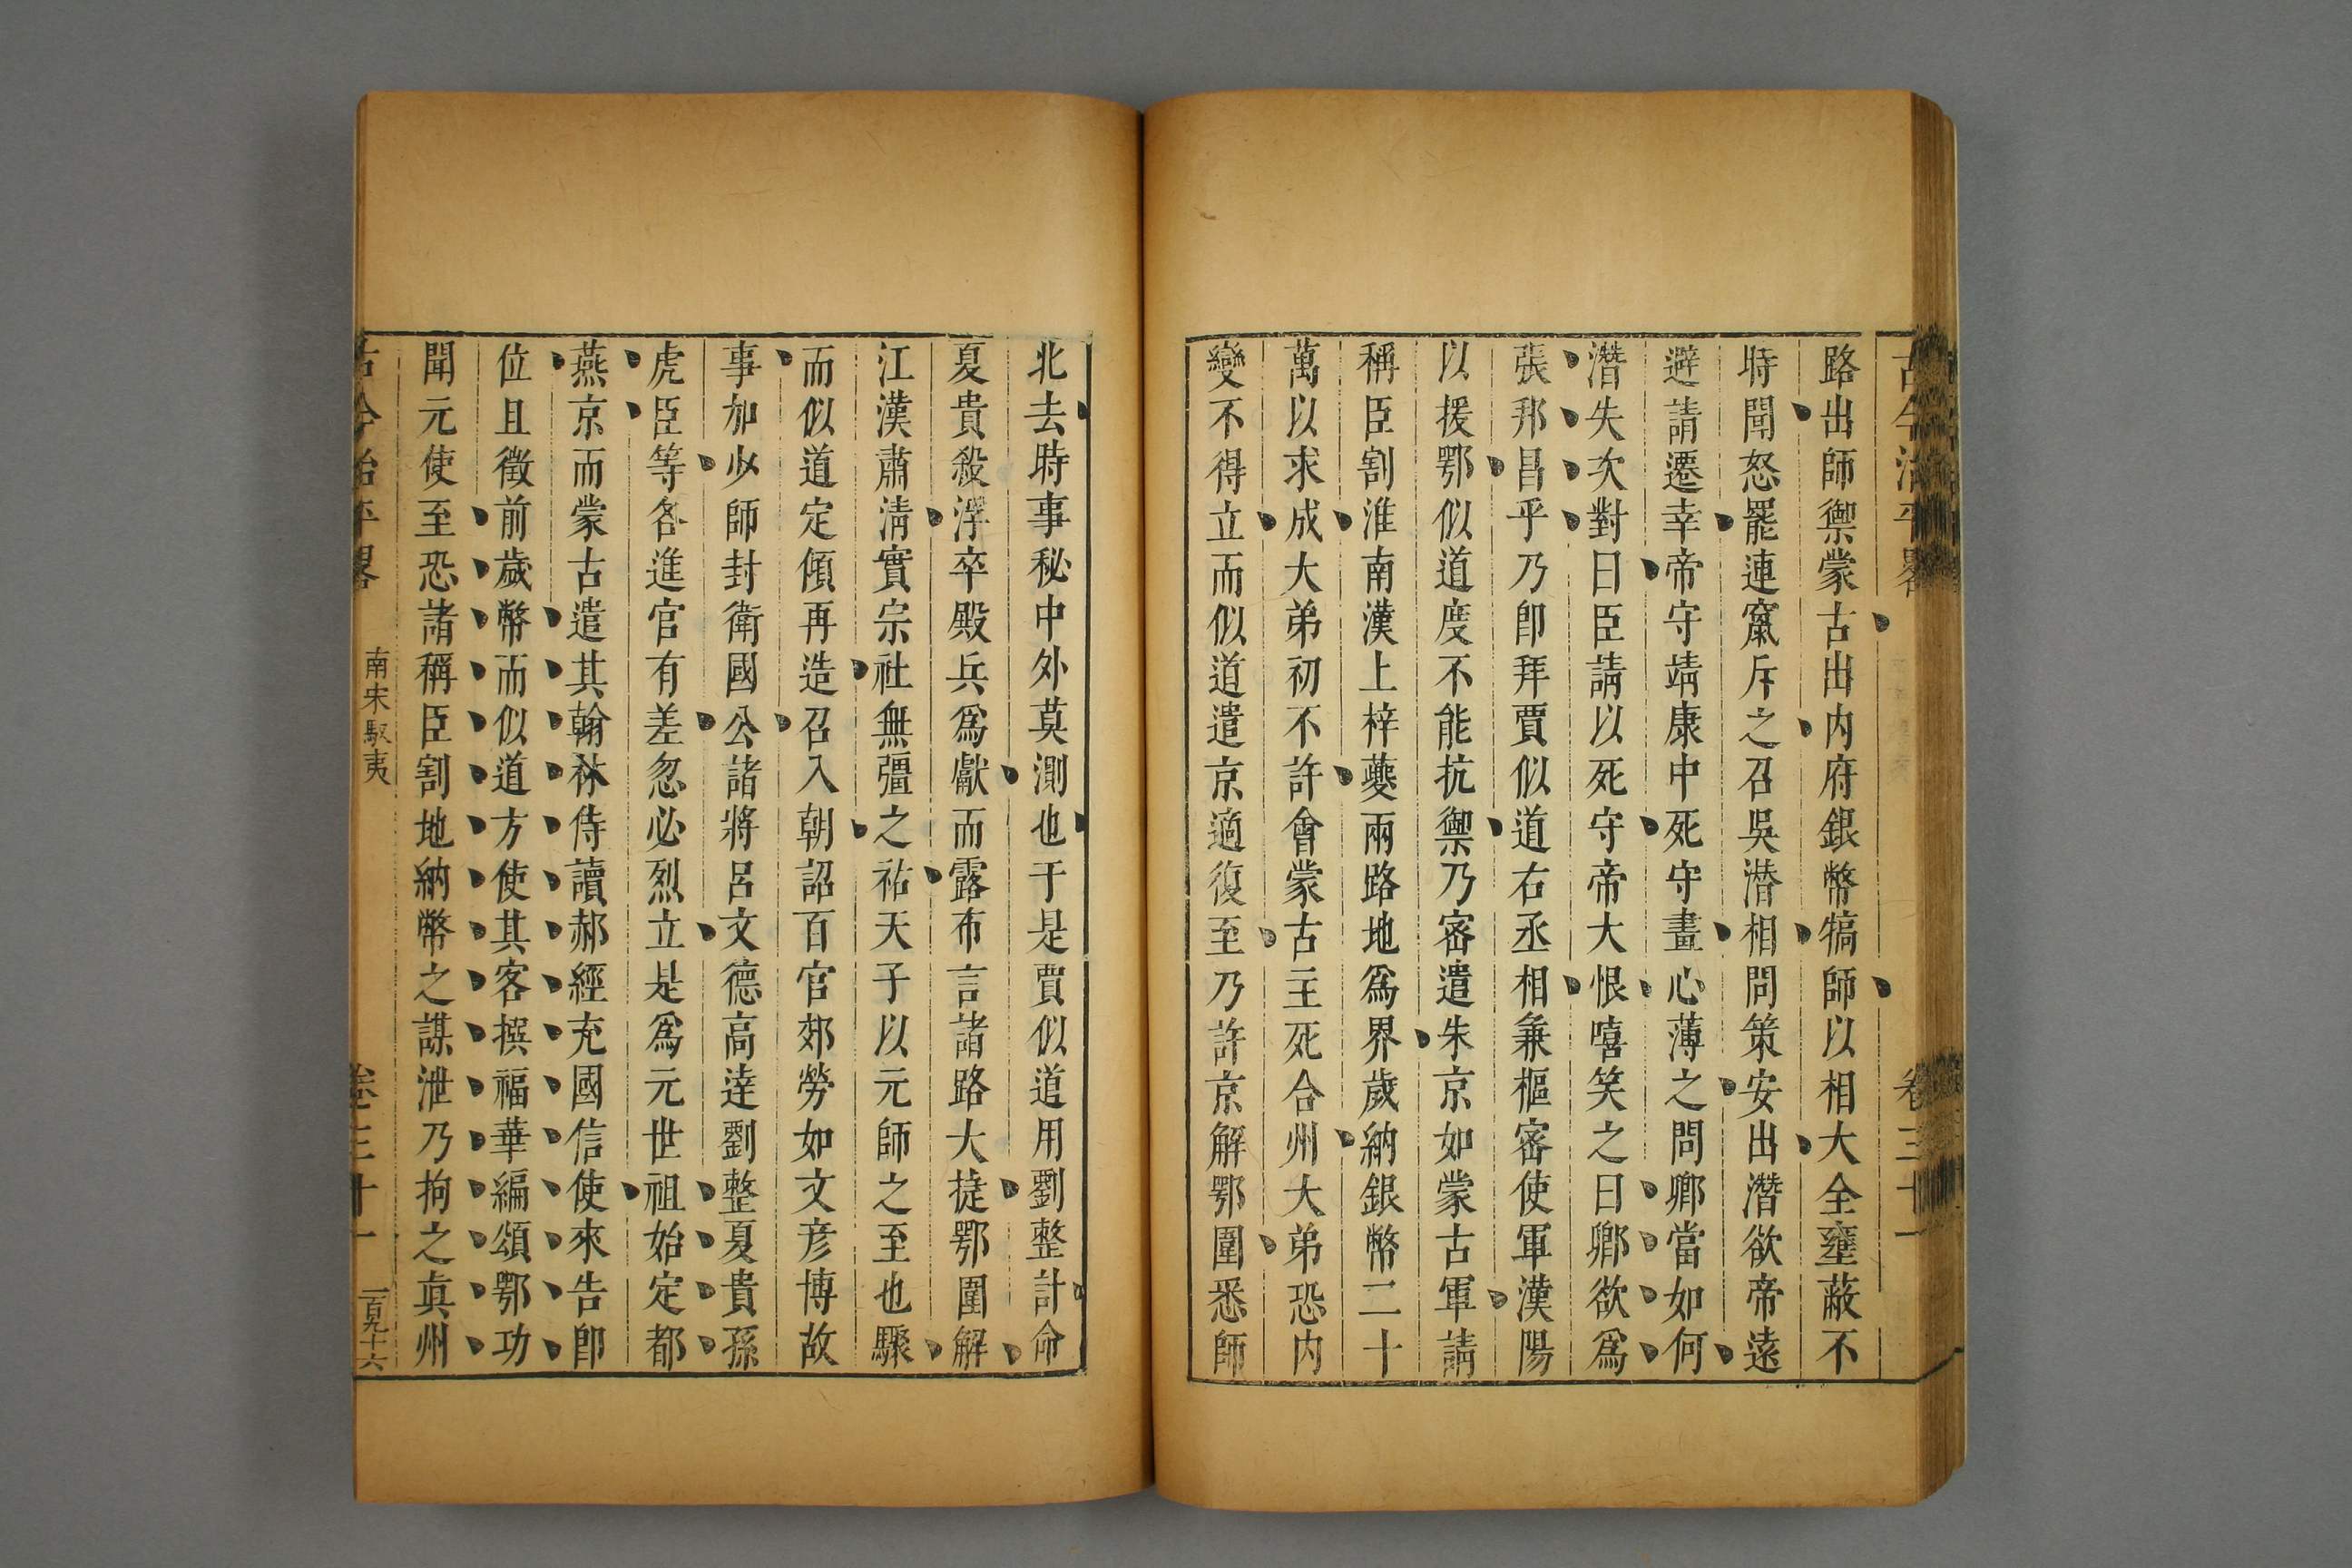 古今治平畧 卷三十一
路出師禦蒙古出内府銀幣犒師以相大全壅蔽不
時聞怒罷連竄斥之召吳潛相問策安出潛欲帝遠
避請遷幸帝守靖康中死守畫心薄之問卿當如何
潛失次對曰臣請以死守帝大恨嘻笑之曰卿欲爲
張邦昌乎乃卽拜賈似道右丞相兼樞密使軍漢陽
以援鄂似道度不能抗禦乃密遣朱京如蒙古軍請
稱臣割淮南漢上梓夔兩路地爲界歲納銀幣二十
萬以求成大弟初不許會蒙古主死合州大弟恐内
變不得立而似道遣京適復至乃許京解鄂圍悉師
北去時事秘中外莫測也于是賈似道用劉整計命
夏貴殺浮卒殿兵爲獻而露布言諸路大捷鄂圍解
江漢肅清實宗社無彊之祐天子以元師之至也驟
而似道定傾再造召入朝詔百官郊勞如文彥博故
事加少師封衛國公諸將呂文德高逹劉整夏貴孫
虎臣等各進官有差忽必烈立是爲元世祖始定都
燕京而蒙古遣其翰林侍讀郝經充國信使來告卽
位且徵前歲幣而似道方使其客撰福華編頌鄂功
聞元使至恐諸稱臣割地納幣之謀泄乃拘之眞州
古今治平畧 南宋馭夷 卷三十一 一百九十六